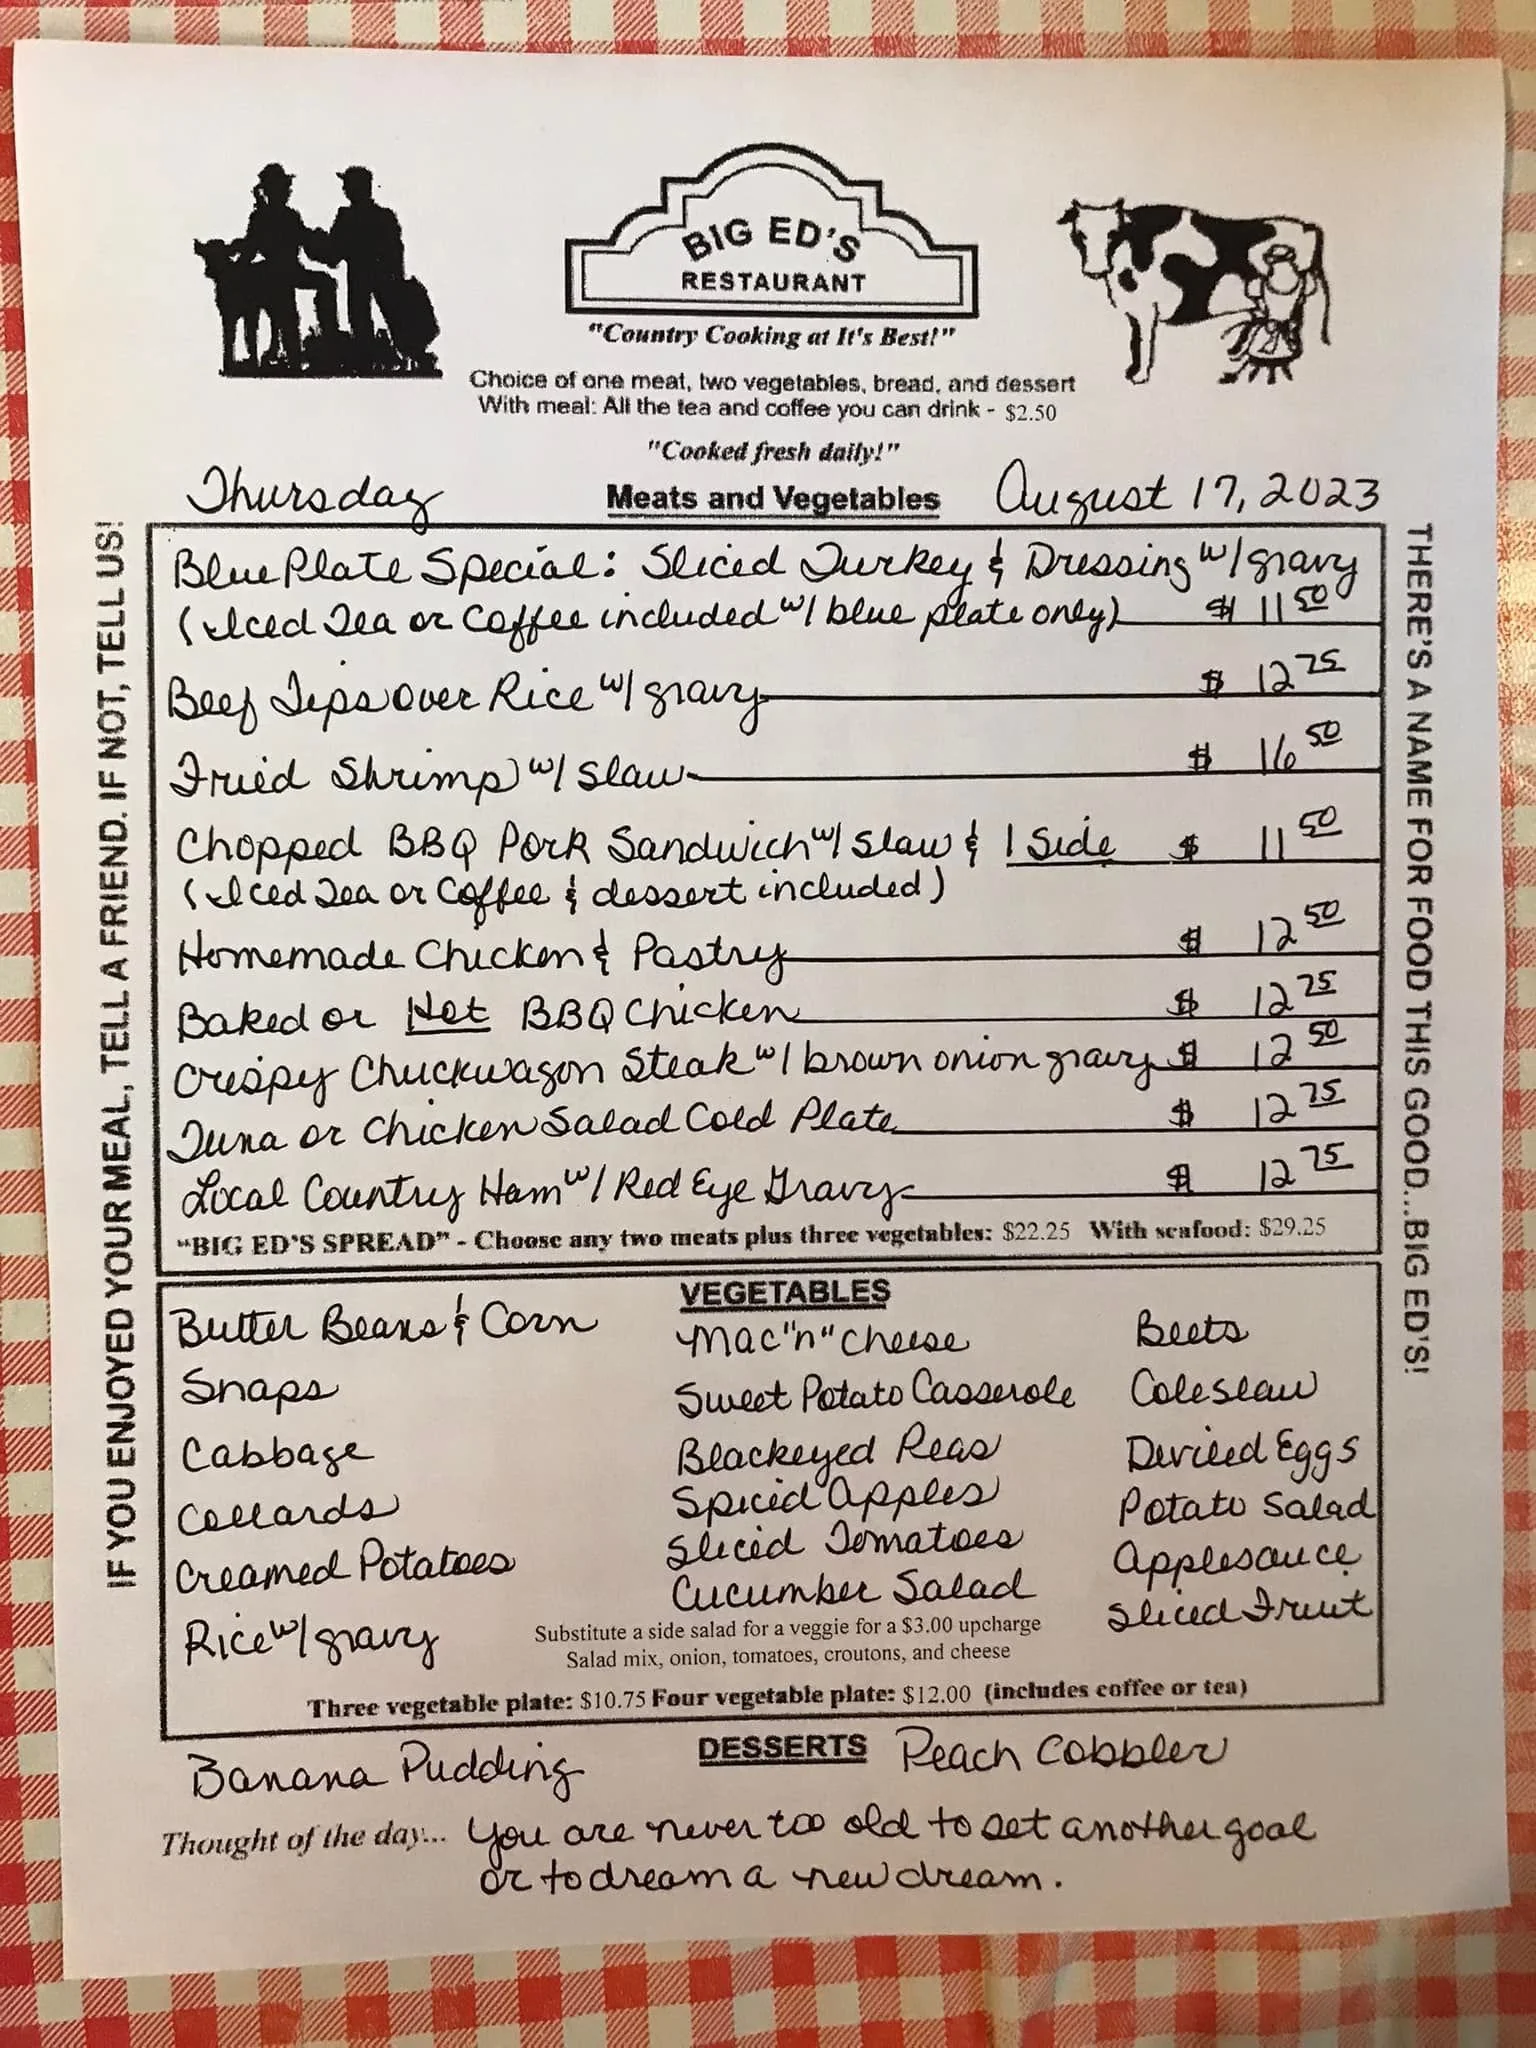 BIG ED'S
RESTAURANT
"Country Cooking at It's Best!"
Choice of one meat, two vegetables, bread, and dessert
With meal: All the tea and coffee you can drink - $2.50
"Cooked fresh daily!"
Thursday Meats and Vegetables August 17, 2023
IF YOU ENJOYED YOUR MEAL, TELL A FRIEND. IF NOT, TELL US!
Blue Plate Special: Sliced Turkey & Dressing w/ gravy
(Iced Tea or Coffee included w/ blue plate only) $ 11 50
Beef Tips over Rice w/ gravy $ 12 75
Fried Shrimp w/ slaw $ 16 50
Chopped BBQ Pork Sandwich w/ slaw & 1 Side $ 11 50
(Iced Tea or Coffee & dessert included)
Homemade Chicken & Pastry $ 12 50
Baked or Hot BBQ Chicken $ 12 75
Crispy Chuckwagon Steak w/ brown onion gravy $ 12 50
Tuna or Chicken Salad Cold Plate $ 12 75
Local Country Ham w/ Red Eye Gravy $ 12 75
"BIG ED'S SPREAD" - Choose any two meats plus three vegetables: $22.25 With seafood: $29.25
THERE'S A NAME FOR FOOD THIS GOOD...BIG ED'S!
VEGETABLES
Butter Beans & Corn
Snaps
Cabbage
Collards
Creamed Potatoes
Rice w/ gravy
Mac "n" Cheese
Sweet Potato Casserole
Blackeyed Peas
Spiced Apples
Sliced Tomatoes
Cucumber Salad
Beets
Coleslaw
Deviled Eggs
Potato Salad
Applesauce
Sliced Fruit
Substitute a side salad for a veggie for a $3.00 upcharge
Salad mix, onion, tomatoes, croutons, and cheese
Three vegetable plate: $10.75 Four vegetable plate: $12.00 (includes coffee or tea)
Banana Pudding DESSERTS Peach Cobbler
Thought of the day... You are never too old to set another goal
or to dream a new dream.